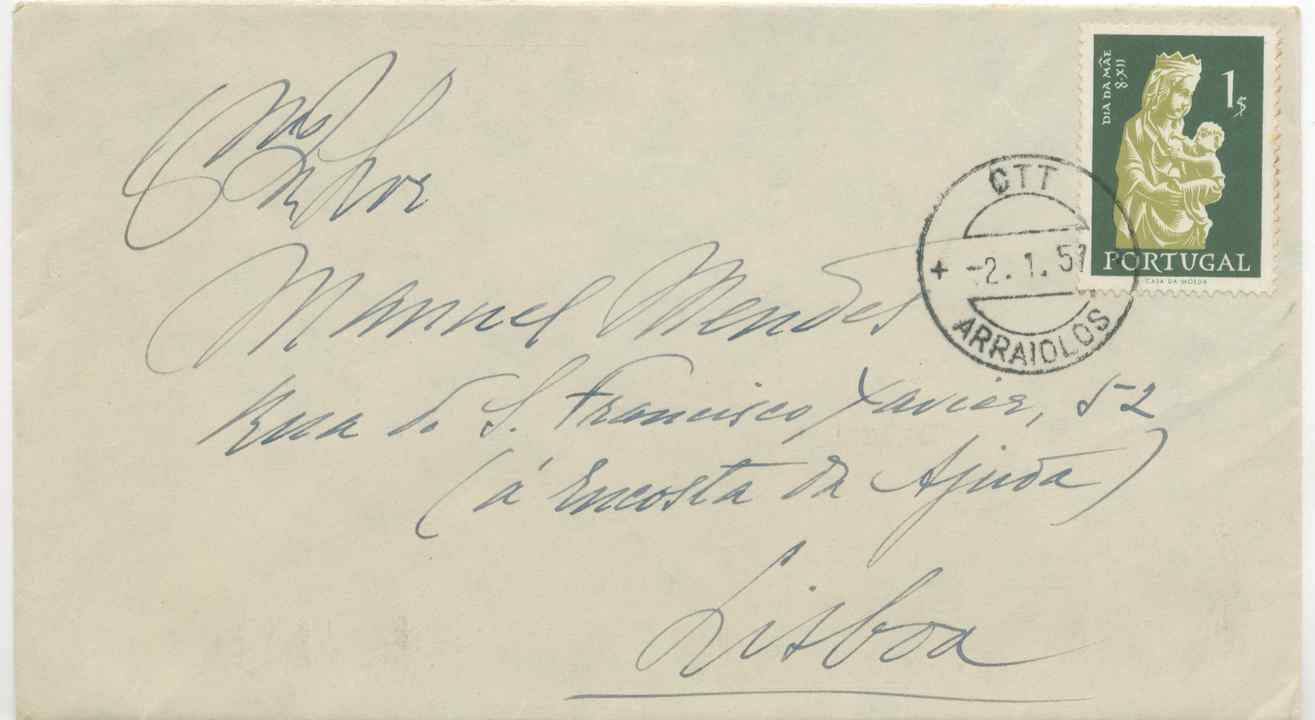 Senhor
Manuel Mendes
Rua de S. Francisco Xavier, 52
(á Encosta da Ajuda)
Lisboa
DIA DA MÃE
8·XII
1$
PORTUGAL
CASA DA MOEDA
CTT
-2.1.57
ARRAIOLOS